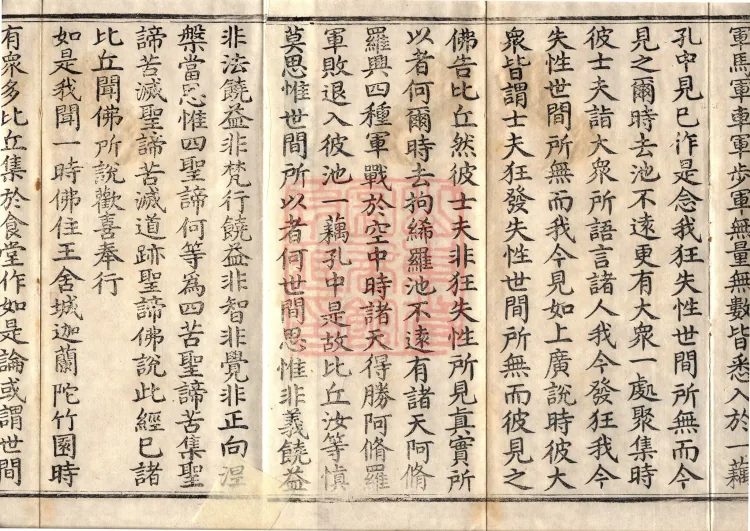 軍馬軍車軍步軍無量無數皆悉入於一藕
孔中見已作是念我狂失性世間所無而今
見之爾時去池不遠更有大衆一處聚集時
彼士夫詣大衆所語言諸人我今發狂我今
失性世間所無而我今見如上廣說時彼大
衆皆謂士夫狂發失性世間所無而彼見之
佛告比丘然彼士夫非狂失性所見真實所
以者何爾時去拘絺羅池不遠有諸天阿脩
羅興四種軍戰於空中時諸天得勝阿脩羅
軍敗退入彼池一藕孔中是故比丘汝等慎
莫思惟世間所以者何世間思惟非義饒益
非法饒益非梵行饒益非智非覺非正向涅
槃當思惟四聖諦何等爲四苦聖諦苦集聖
諦苦滅聖諦苦滅道跡聖諦佛說此經已諸
比丘聞佛所說歡喜奉行
如是我聞一時佛住王舍城迦蘭陀竹園時
有衆多比丘集於食堂作如是論或謂世間